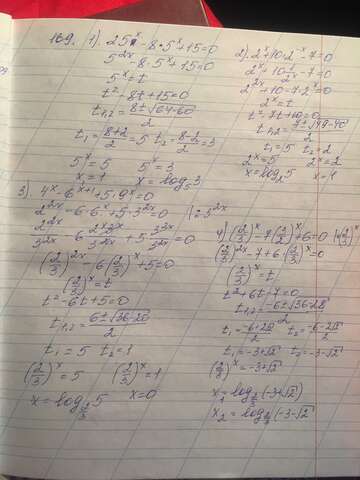 169. 1) 25^x - 8·5^x + 15 = 0
5^{2x} - 8·5^x + 15 = 0
5^x = t
t² - 8t + 15 = 0
t_{1,2} = (8 ± √(64-60))/2
t_1 = (8+2)/2 = 5 t_2 = (8-2)/2 = 3
5^x = 5 5^x = 3
x = 1 x = log_5 3
2) 2^x + 10·2^{-x} - 7 = 0
2^x + 10·1/2^x - 7 = 0
2^{2x} + 10 - 7·2^x = 0
2^x = t
t² - 7t + 10 = 0
t_{1,2} = (7 ± √(49-40))/2
t_1 = 5 t_2 = 2
2^x = 5 2^x = 2
x = log_2 5 x = 1
3) 4^x - 6^{x+1} + 5·9^x = 0
2^{2x} - 6·6^x + 5·3^{2x} = 0
2^{2x}/3^{2x} - 6·2^x 3^x/3^{2x} + 5 3^{2x}/3^{2x} = 0
(2/3)^{2x} - 6(2/3)^x + 5 = 0
(2/3)^x = t
t² - 6t + 5 = 0
t_{1,2} = (6 ± √(36-20))/2
t_1 = 5 t_2 = 1
(2/3)^x = 5 (2/3)^x = 1
x = log_{2/3} 5 x = 0
(2/3)^x = t
t² + 6t - 7 = 0
t_1 = -3+√2 t_2 = -3-√2
(2/3)^x = -3+√2
x_1 = log_{2/3}(-3+√2)
x_2 = log_{2/3}(-3-√2)